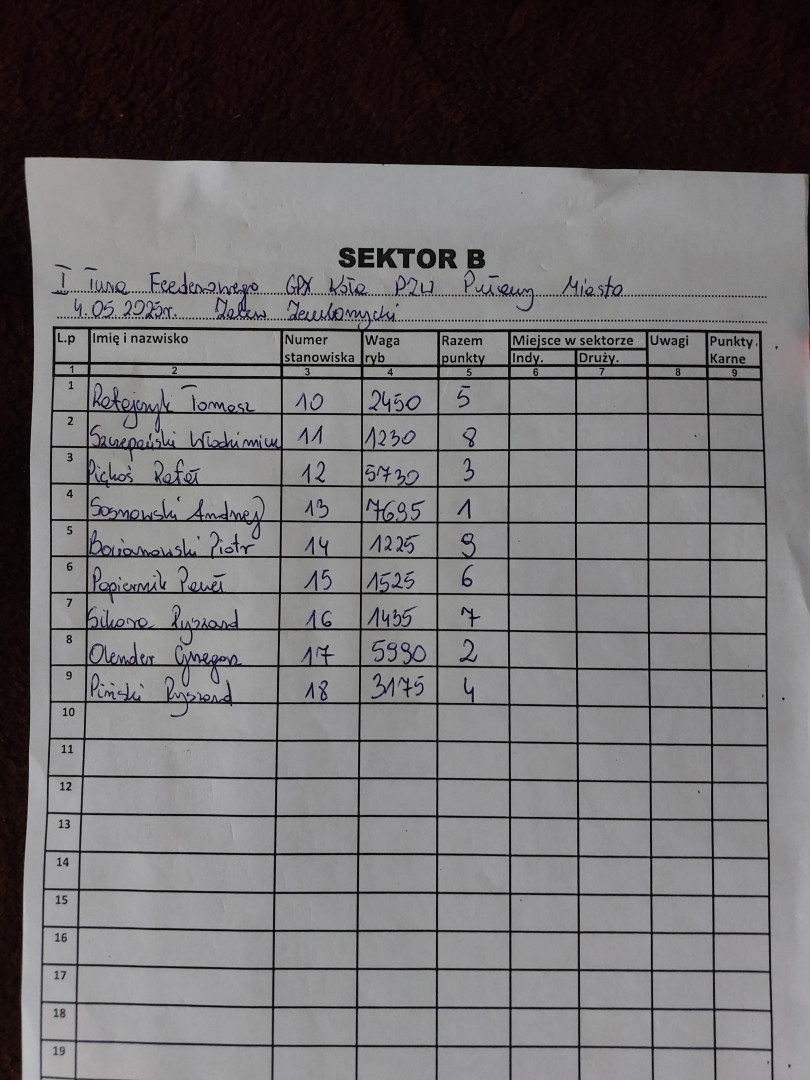 SEKTOR B
I Tura Feederowego GPX Koła PZW Puławy Miasto
4.05.2025r. Zalew Zemborzycki
L.p Imię i nazwisko Numer stanowiska Waga ryb Razem punkty Miejsce w sektorze Indy. Druży. Uwagi Punkty. Karne
1 2 3 4 5 6 7 8 9
1 Ratajczyk Tomasz 10 2450 5
2 Szczepański Włodzimierz 11 1230 8
3 Piękoś Rafał 12 5730 3
4 Sosnowski Andrzej 13 7695 1
5 Bocianowski Piotr 14 1225 9
6 Papiernik Paweł 15 1525 6
7 Sikora Ryszard 16 1435 7
8 Olender Grzegorz 17 5990 2
9 Piński Ryszard 18 3175 4
10
11
12
13
14
15
16
17
18
19